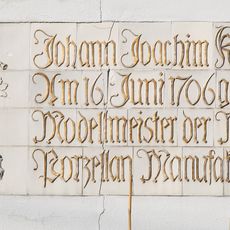 Johann Joachim K
Am 16. Juni 1706 g
Modellmeister der
Porzellan Manufak